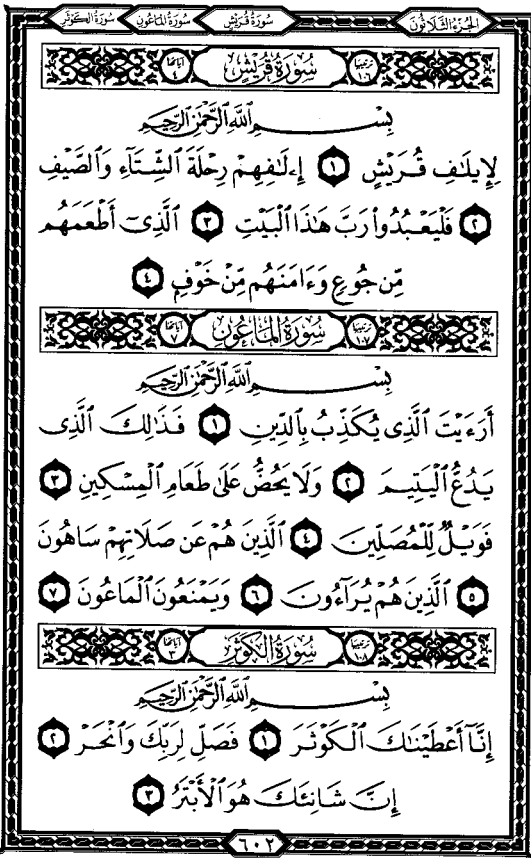 الجزء الثلاثون سورة قريش سورة الماعون سورة الكوثر
ترتيبها ١٠٦ سورة قريش آياتها ٤
بِسْمِ ٱللَّهِ ٱلرَّحْمَٰنِ ٱلرَّحِيمِ
لِإِيلَٰفِ قُرَيْشٍ ١ إِۦلَٰفِهِمْ رِحْلَةَ ٱلشِّتَآءِ وَٱلصَّيْفِ
٢ فَلْيَعْبُدُوا۟ رَبَّ هَٰذَا ٱلْبَيْتِ ٣ ٱلَّذِىٓ أَطْعَمَهُم
مِّن جُوعٍ وَءَامَنَهُم مِّنْ خَوْفٍۭ ٤
ترتيبها ١٠٧ سورة الماعون آياتها ٧
بِسْمِ ٱللَّهِ ٱلرَّحْمَٰنِ ٱلرَّحِيمِ
أَرَءَيْتَ ٱلَّذِى يُكَذِّبُ بِٱلدِّينِ ١ فَذَٰلِكَ ٱلَّذِى
يَدُعُّ ٱلْيَتِيمَ ٢ وَلَا يَحُضُّ عَلَىٰ طَعَامِ ٱلْمِسْكِينِ ٣
فَوَيْلٌ لِّلْمُصَلِّينَ ٤ ٱلَّذِينَ هُمْ عَن صَلَاتِهِمْ سَاهُونَ
٥ ٱلَّذِينَ هُمْ يُرَآءُونَ ٦ وَيَمْنَعُونَ ٱلْمَاعُونَ ٧
ترتيبها ١٠٨ سورة الكوثر آياتها ٣
بِسْمِ ٱللَّهِ ٱلرَّحْمَٰنِ ٱلرَّحِيمِ
إِنَّآ أَعْطَيْنَٰكَ ٱلْكَوْثَرَ ١ فَصَلِّ لِرَبِّكَ وَٱنْحَرْ ٢
إِنَّ شَانِئَكَ هُوَ ٱلْأَبْتَرُ ٣
٦٠٢